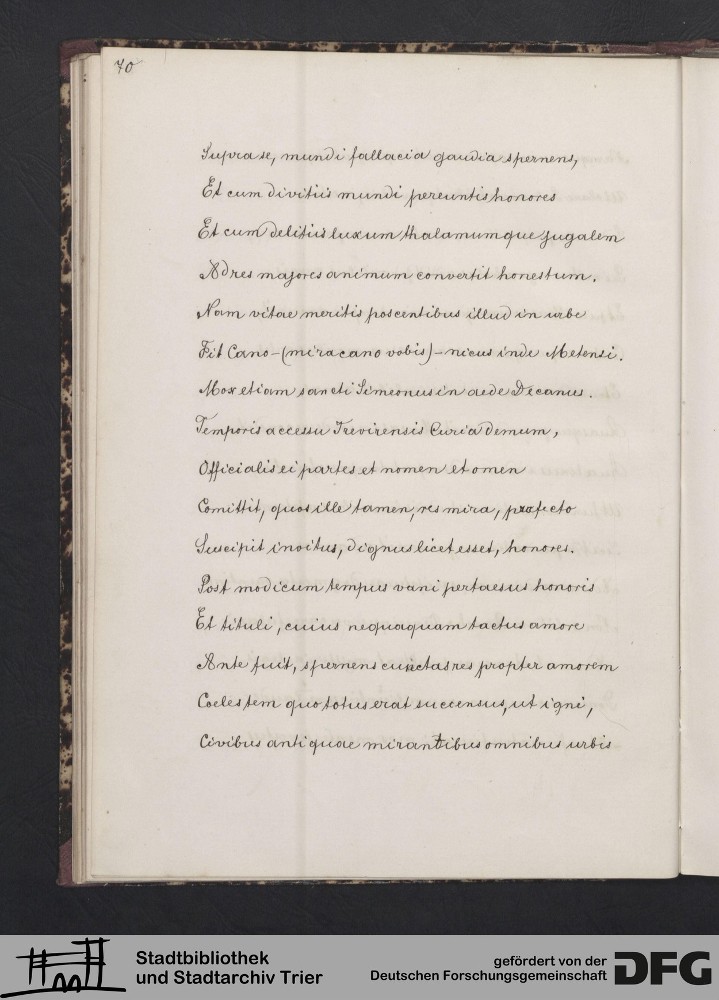 70
Supra se, mundi fallacia gaudia spernens,
Et cum divitiis mundi pereuntis honores
Et cum delitiis luxum thalamumque jugalem
Ad res majores animum convertit honestum.
Nam vitae meritis poscentibus illud in urbe
Fit Cano-(mira cano vobis)-nicus inde Metensi.
Mox etiam sancti Simeonus in aede Decanus.
Temporis accessu Trevirensis Curia demum,
Officialis ei partes et nomen et omen
Comittit, quos ille tamen, res mira, profecto
Suscipit invitus, dignus licet esset, honores.
Post modicum tempus vani pertaesus honoris
Et tituli, cuius nequaquam tactus amore
Ante fuit, spernens cunctas res propter amorem
Coelestem quo totus erat succensus, ut igni,
Civibus antiquae mirantibus omnibus urbis
Stadtbibliothek
und Stadtarchiv Trier
gefördert von der
Deutschen Forschungsgemeinschaft
DFG